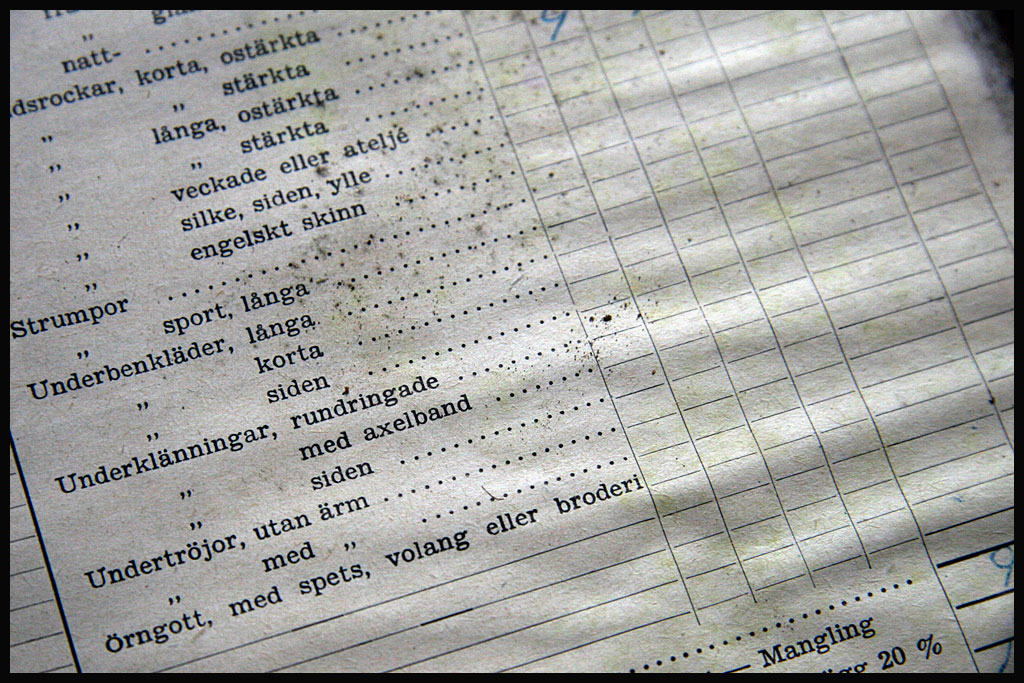 „
natt- ..........
dsrockar, korta, ostärkta ..........
„ „ stärkta ..........
„ långa, ostärkta ..........
„ „ stärkta ..........
„ veckade eller ateljé ......
„ silke, siden, ylle ..........
„ engelskt skinn ..........
Strumpor ..........
„ sport, långa ..........
Underbenkläder, långa ..........
„ korta ..........
„ siden ..........
Underklänningar, rundringade ..........
„ med axelband ........
„ siden ..........
Undertröjor, utan ärm ..........
„ med „ ..........
Örngott, med spets, volang eller broderi
Mangling
20 %